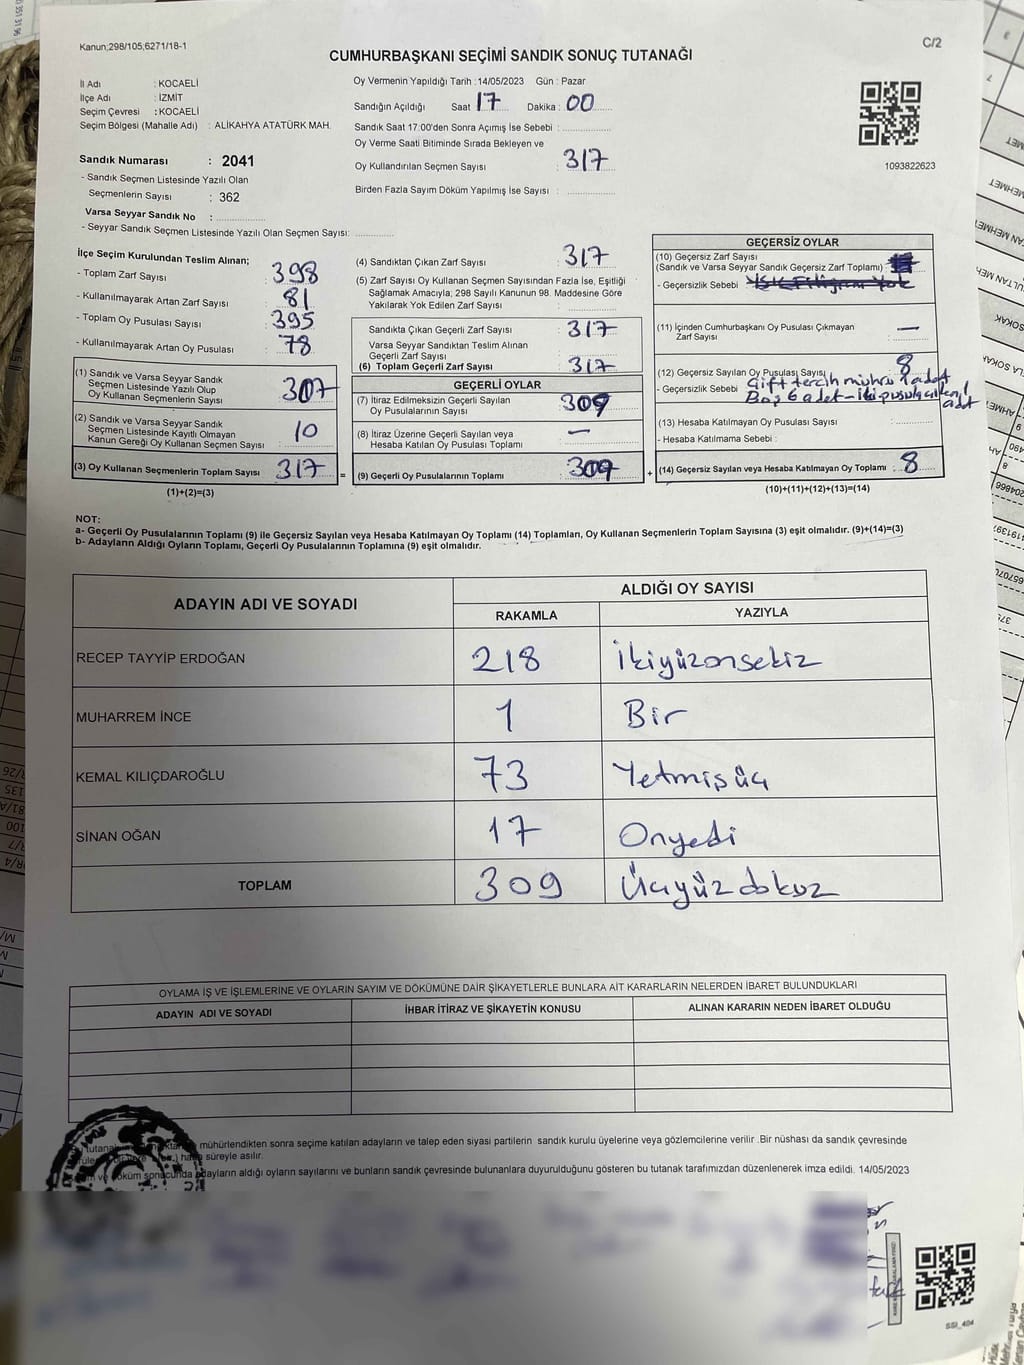 Kanun;298/105;6271/18-1
C/2
CUMHURBAŞKANI SEÇİMİ SANDIK SONUÇ TUTANAĞI
İl Adı : KOCAELİ
İlçe Adı : İZMİT
Seçim Çevresi : KOCAELİ
Seçim Bölgesi (Mahalle Adı) : ALİKAHYA ATATÜRK MAH.
Sandık Numarası : 2041
- Sandık Seçmen Listesinde Yazılı Olan
Seçmenlerin Sayısı : 362
Varsa Seyyar Sandık No :
- Seyyar Sandık Seçmen Listesinde Yazılı Olan Seçmen Sayısı:
Oy Vermenin Yapıldığı Tarih : 14/05/2023 Gün : Pazar
Sandığın Açıldığı Saat 17 Dakika : 00
Sandık Saat 17:00'den Sonra Açımış İse Sebebi :
Oy Verme Saati Bitiminde Sırada Bekleyen ve
Oy Kullandırılan Seçmen Sayısı : 317
Birden Fazla Sayım Döküm Yapılmış İse Sayısı :
1093822623
İlçe Seçim Kurulundan Teslim Alınan;
- Toplam Zarf Sayısı : 398
- Kullanılmayarak Artan Zarf Sayısı : 81
- Toplam Oy Pusulası Sayısı : 395
- Kullanılmayarak Artan Oy Pusulası : 78
(1) Sandık ve Varsa Seyyar Sandık
Seçmen Listesinde Yazılı Olup
Oy Kullanan Seçmenlerin Sayısı : 307
(2) Sandık ve Varsa Seyyar Sandık
Seçmen Listesinde Kayıtlı Olmayan
Kanun Gereği Oy Kullanan Seçmen Sayısı : 10
(3) Oy Kullanan Seçmenlerin Toplam Sayısı : 317 =
(1)+(2)=(3)
(4) Sandıktan Çıkan Zarf Sayısı : 317
(5) Zarf Sayısı Oy Kullanan Seçmen Sayısından Fazla İse, Eşitliği
Sağlamak Amacıyla; 298 Sayılı Kanunun 98. Maddesine Göre
Yakılarak Yok Edilen Zarf Sayısı :
Sandıkta Çıkan Geçerli Zarf Sayısı : 317
Varsa Seyyar Sandıktan Teslim Alınan
Geçerli Zarf Sayısı :
(6) Toplam Geçerli Zarf Sayısı : 317
GEÇERLİ OYLAR
(7) İtiraz Edilmeksizin Geçerli Sayılan
Oy Pusulalarının Sayısı : 309
(8) İtiraz Üzerine Geçerli Sayılan veya
Hesaba Katılan Oy Pusulası Toplamı : —
(9) Geçerli Oy Pusulalarının Toplamı : 309 +
GEÇERSİZ OYLAR
(10) Geçersiz Zarf Sayısı
(Sandık ve Varsa Seyyar Sandık Geçersiz Zarf Toplamı) :
- Geçersizlik Sebebi :
(11) İçinden Cumhurbaşkanı Oy Pusulası Çıkmayan
Zarf Sayısı : —
(12) Geçersiz Sayılan Oy Pusulası Sayısı : 8
- Geçersizlik Sebebi : Çift tercih mührü 1 adet
Boş 6 adet - iki pusula çıkan 1
adet
(13) Hesaba Katılmayan Oy Pusulası Sayısı :
- Hesaba Katılmama Sebebi :
(14) Geçersiz Sayılan veya Hesaba Katılmayan Oy Toplamı : 8
(10)+(11)+(12)+(13)=(14)
NOT:
a- Geçerli Oy Pusulalarının Toplamı (9) ile Geçersiz Sayılan veya Hesaba Katılmayan Oy Toplamı (14) Toplamları, Oy Kullanan Seçmenlerin Toplam Sayısına (3) eşit olmalıdır. (9)+(14)=(3)
b- Adayların Aldığı Oyların Toplamı, Geçerli Oy Pusulalarının Toplamına (9) eşit olmalıdır.
ADAYIN ADI VE SOYADI
ALDIĞI OY SAYISI
RAKAMLA YAZIYLA
RECEP TAYYİP ERDOĞAN 218 İkiyüzonsekiz
MUHARREM İNCE 1 Bir
KEMAL KILIÇDAROĞLU 73 Yetmişüç
SİNAN OĞAN 17 Onyedi
TOPLAM 309 Üçyüzdokuz
OYLAMA İŞ VE İŞLEMLERİNE VE OYLARIN SAYIM VE DÖKÜMÜNE DAİR ŞİKAYETLERLE BUNLARA AİT KARARLARIN NELERDEN İBARET BULUNDUKLARI
ADAYIN ADI VE SOYADI İHBAR İTİRAZ VE ŞİKAYETİN KONUSU ALINAN KARARIN NEDEN İBARET OLDUĞU
mühürlendikten sonra seçime katılan adayların ve talep eden siyasi partilerin sandık kurulu üyelerine veya gözlemcilerine verilir .Bir nüshası da sandık çevresinde
süreyle asılır.
döküm sonucunda adayların aldığı oyların sayılarını ve bunların sandık çevresinde bulunanlara duyurulduğunu gösteren bu tutanak tarafımızdan düzenlenerek imza edildi. 14/05/2023
SSI_404